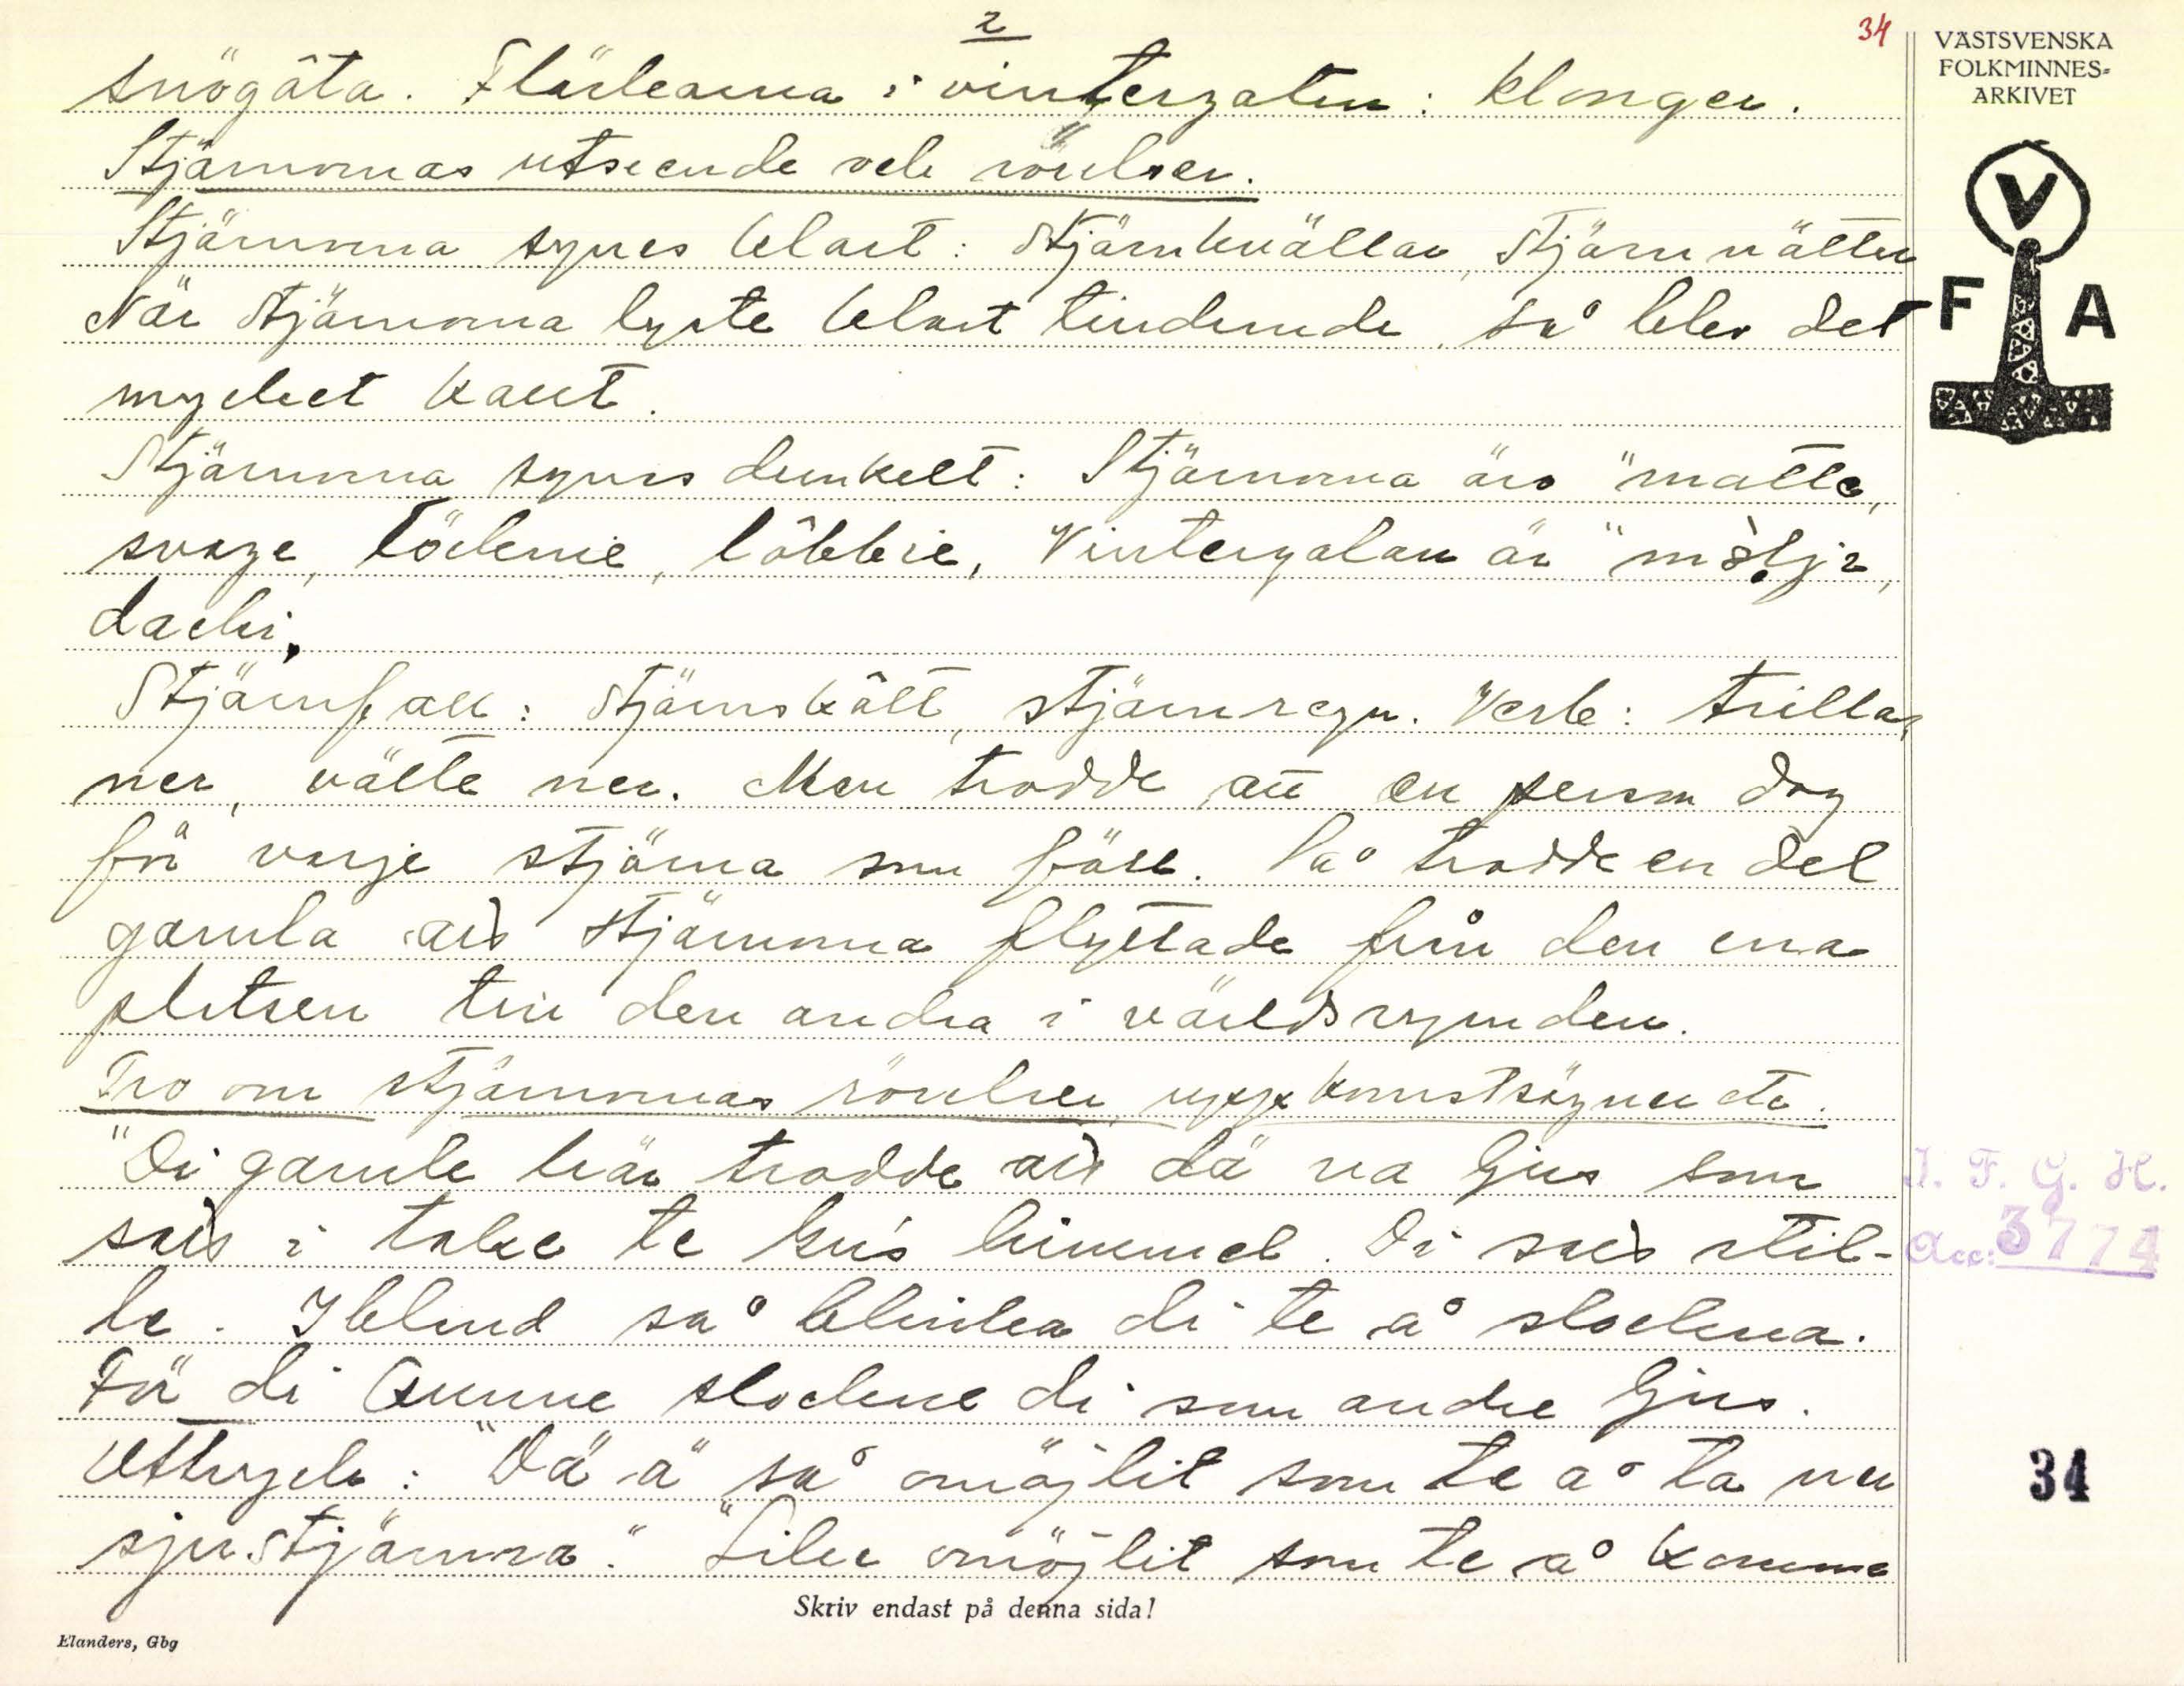 2
34
snögåta. Fläckarna i vintergatan: klunger.
Stjärnornas utseende och rörelser.
Stjärnorna synes klart: stjärnkvällar, stjärnnätter
När stjärnorna lyste klart tindrande, så blev det
mycket kallt.
Stjärnorna synes dunkelt: Stjärnorna äro "matte,
svage, töcknie, lôbbie, Vintergatan är "
dacki.
Stjärnfall: stjärnskått, stjärnregn. Verb: trillar
ner, välte ner. Man trodde att en person dog
för varje stjärna som föll. Så trodde en del
gamla att stjärnorna flyttade från den ena
platsen till den andra i världsrymden.
Tro om stjärnornas rörelser, uppkomstsägner etc.
"Di gamle här trodde att dä va ljus som
satt i taket te Gus himmel. Di satt stil-
le. Iblend så blinka di te å slockna.
För di kunne slockne di som andre ljus.
Uttryck: "Dä ä så omöjlit som te å ta ner
sjustjärna." "Like omöjlit som te å komme
Skriv endast på denna sida!
Elanders, Gbg
VÄSTSVENSKA
FOLKMINNES-
ARKIVET
V
F A
I. F. G. H.
Acc: 3774
34